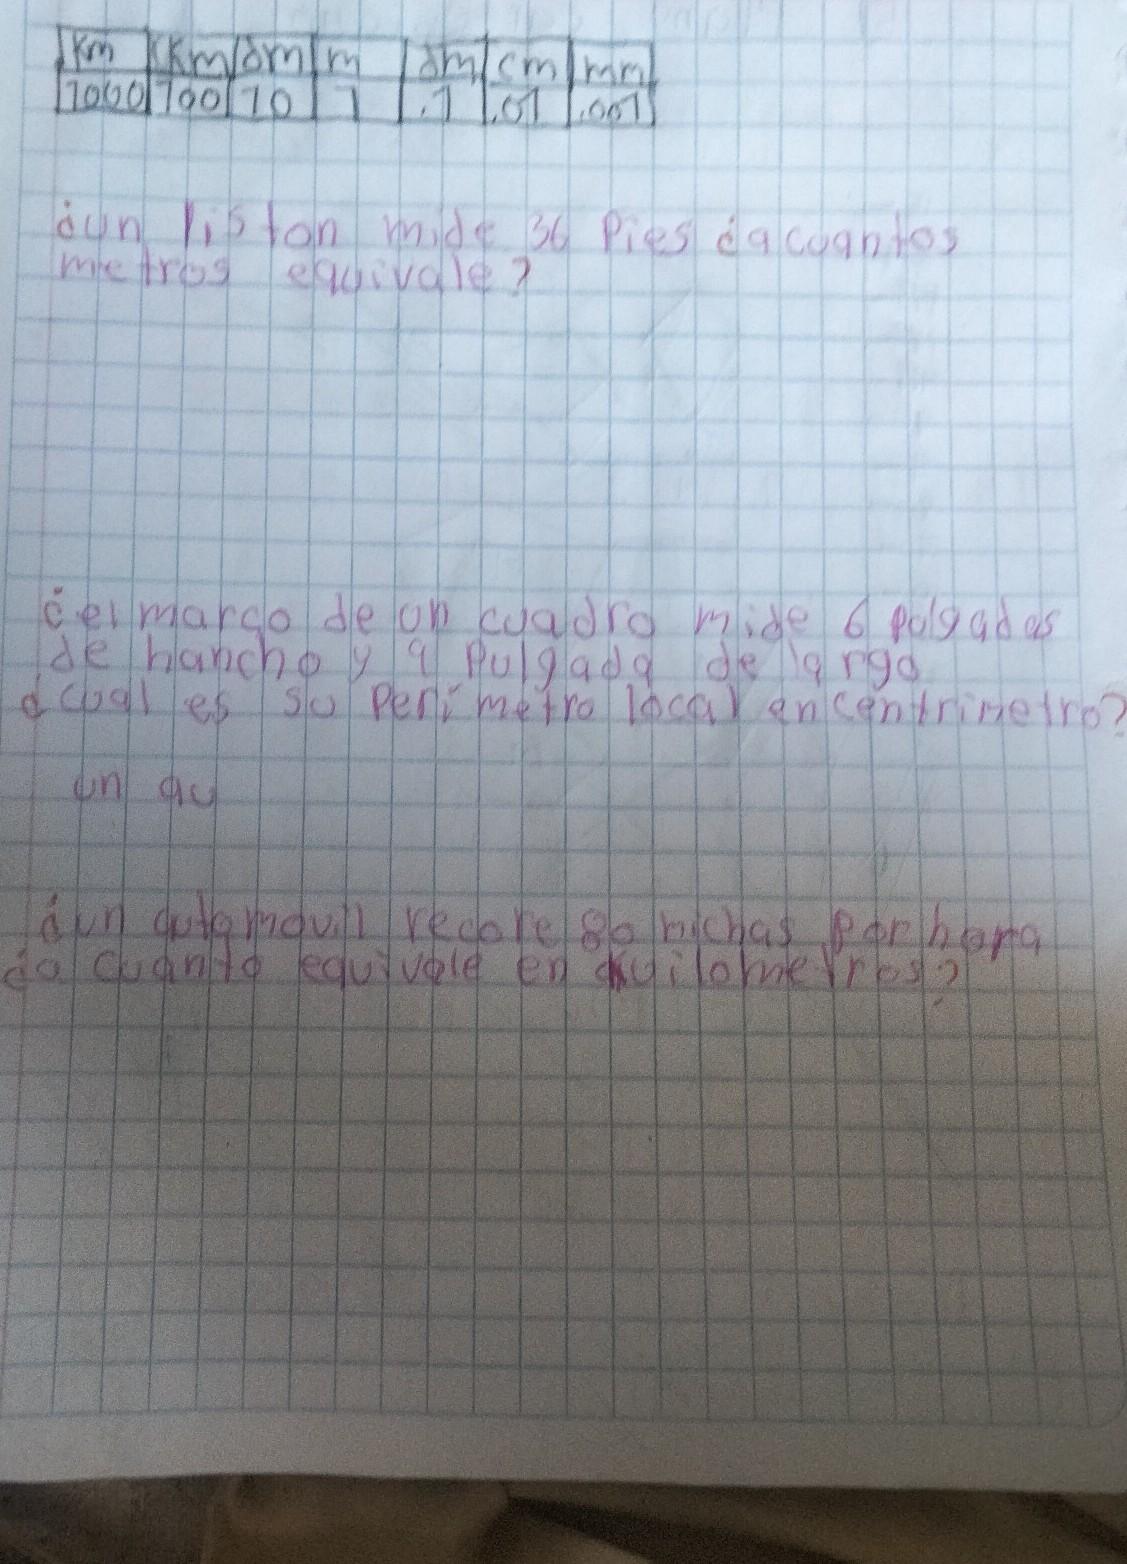 Km Km dm m dm cm mm
1000 100 10 1 .1 .01 .001
¿un liston mide 36 Pies ¿a cuantos
metros equivale?
¿el marco de un cuadro mide 6 pulgadas
de hancho y 9 pulgada de largo
¿cual es su perimetro local en centrimetro?
un au
¿un automovil recore 80 michas por hora
¿a cuanto equivale en quilometros?